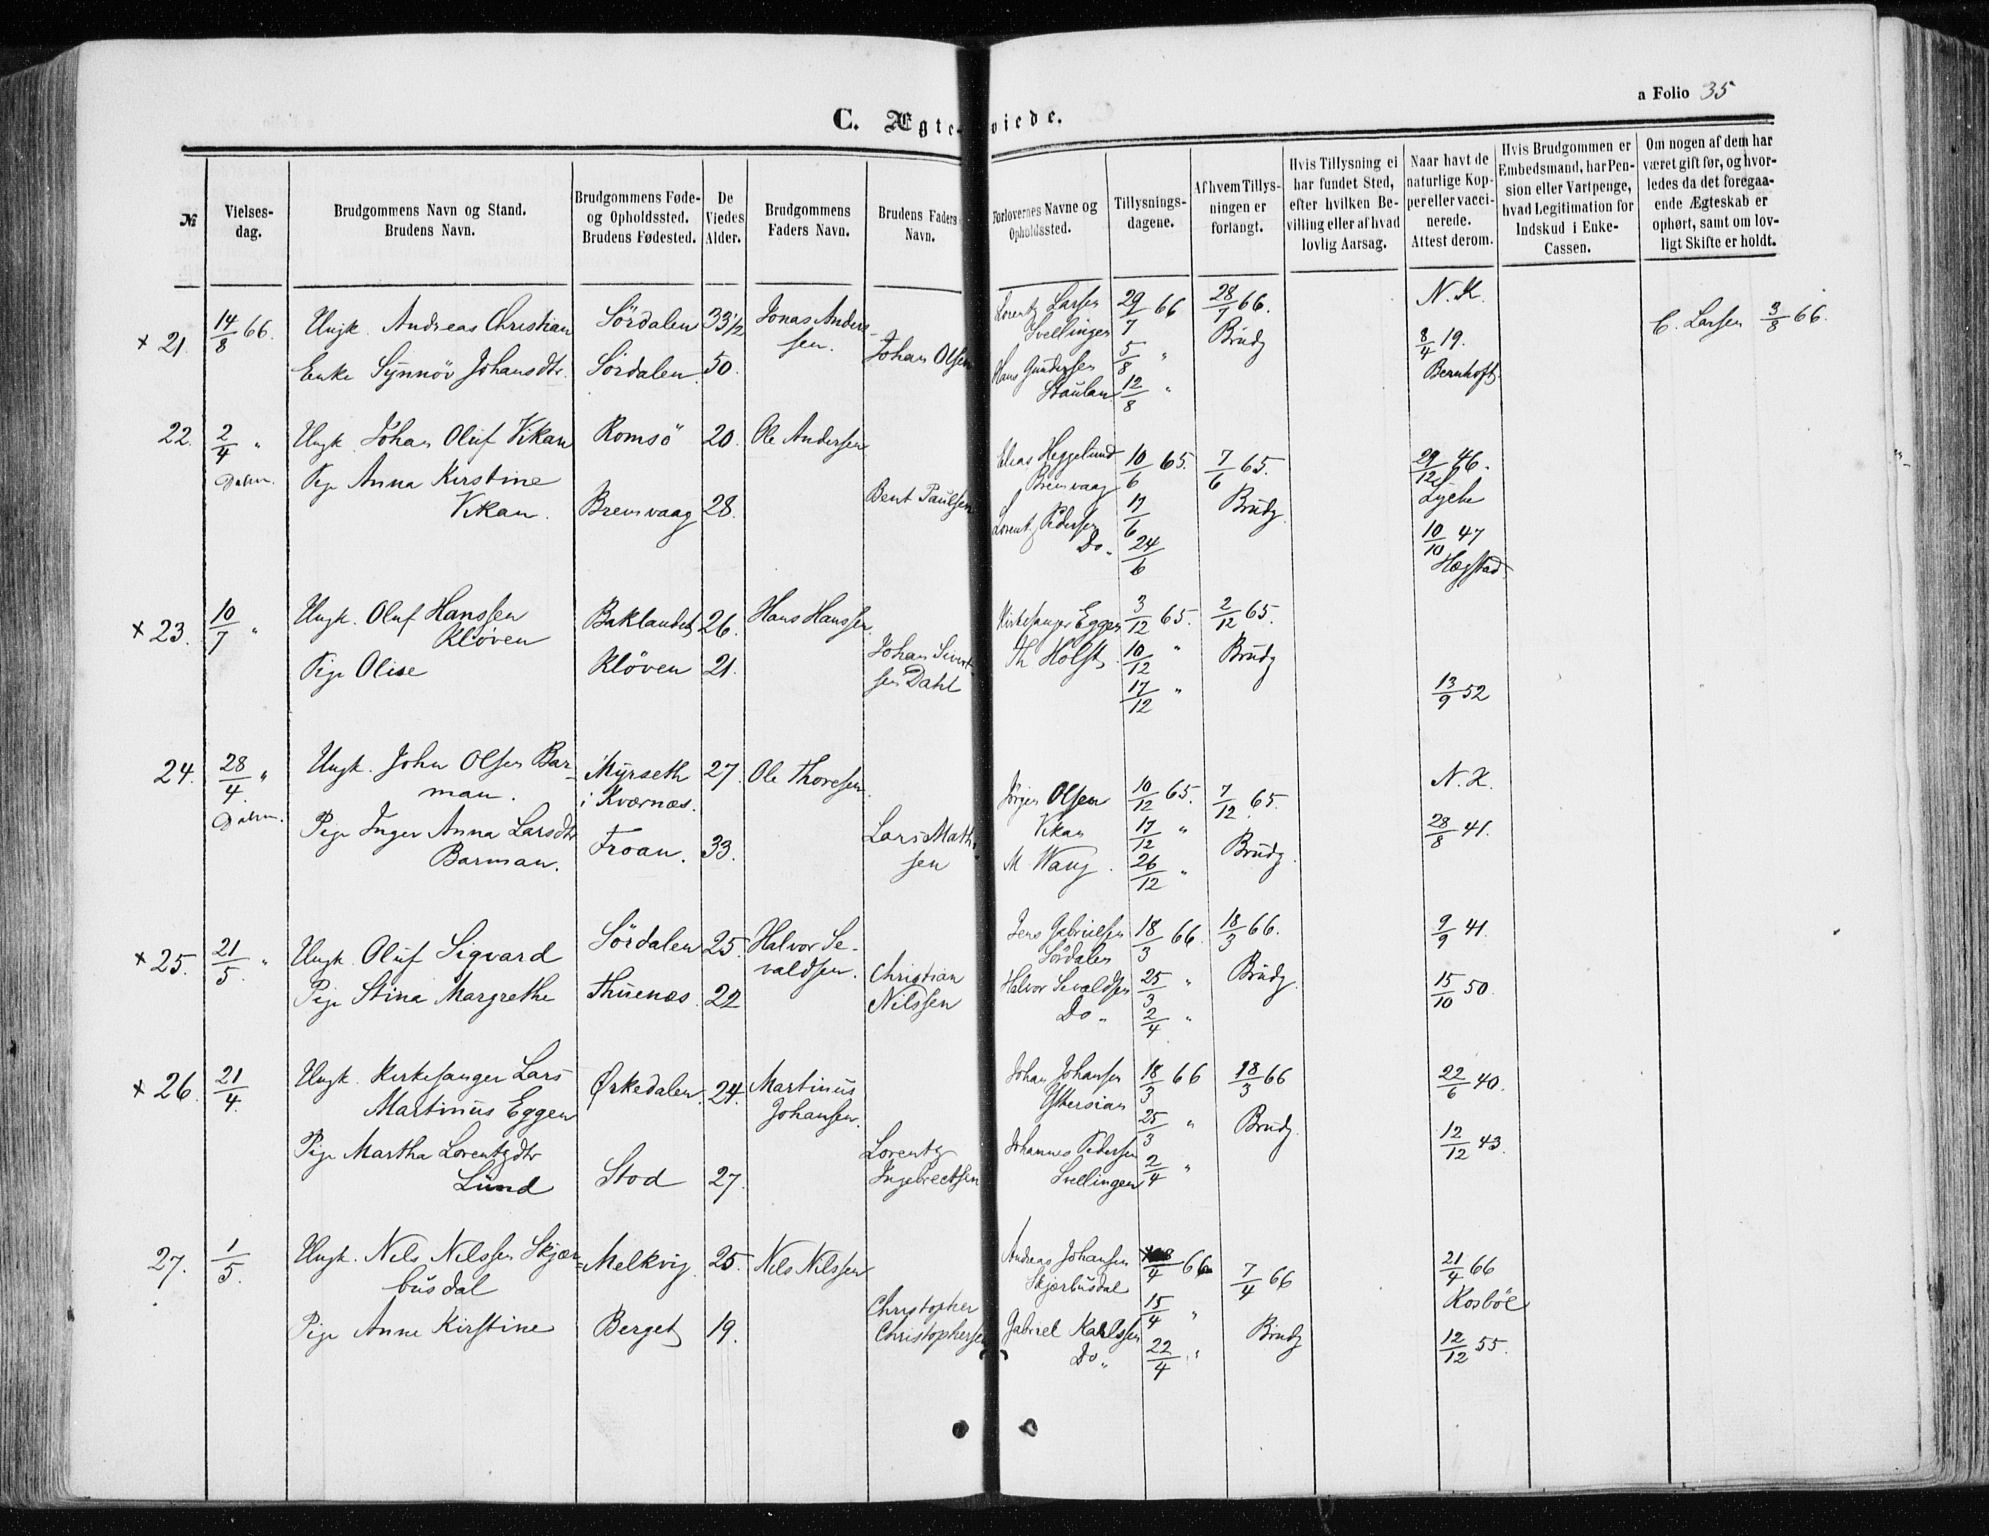 a Folio 35
C. Ægteviede.
№
Vielses-
dag.
Brudgommens Navn og Stand.
Brudens Navn.
Brudgommens Føde-
og Opholdssted.
Brudens Fødested.
De
Viedes
Alder.
Brudgommens
Faders Navn.
Brudens Faders
Navn.
Forlovernes Navne og
Opholdssted.
Tillysnings-
dagene.
Af hvem Tillys-
ningen er
forlangt.
Hvis Tillysning ei
har fundet Sted,
efter hvilken Be-
villing eller af hvad
lovlig Aarsag.
Naar havt de
naturlige Kop-
per eller vacci-
nerede.
Attest derom.
Hvis Brudgommen er
Embedsmand, har Pen-
sion eller Vartpenge,
hvad Legitimation for
Indskud i Enke-
Cassen.
Om nogen af dem har
været gift før, og hvor-
ledes da det foregaa-
ende Ægteskab er
ophørt, samt om lov-
ligt Skifte er holdt.
× 21.
14/8 66.
Ungk. Andreas Christian
Enke Synnöv Johansdtr.
Sördalen
Sördalen
33 1/2
50.
Jonas Ander-
sen.
Johan Olsen
Lorentz Larsen
Svellingen
Hans Gundersen
Staulan
29/7 66
5/8 "
12/8 "
28/7 66.
Brudg
N. K.
8/4 19.
Bernhoft
C. Larsen 3/8 66.
22.
2/4 "
Ungk. Johan Oluf Vikan
Pige Anna Kirstine
Vikan.
Romsö
Bremvaag
20.
28.
Ole Andersen
Bent Paulsen
Elias Heggelund
Bremvaag
Lorentz Pedersen
Do.
10/6 65.
17/6
24/6
7/6 65.
Brudg.
29/12 46.
Lyche
10/10 47
Hegstad
× 23.
10/7 "
Ungk. Oluf Hanssen
Klöven
Pige Olise
Baklandet
Klöven
26.
21.
Hans Hanssen.
Johan Sivert-
sen Dahl
Kirkesanger Eggen
Th Holst
3/12 65.
10/12 "
17/12 "
2/12 65.
Brudg
13/9 52
24.
28/4. "
Ungk. John Olsen Bar-
man.
Pige Inger Anna Larsdtr
Barman.
Myrseth
i Kværnæs.
Froan.
27.
33.
Ole Thoresen.
Lars Math-
sen
Jörgen Olsen
Vikan
M Wang.
10/12 65.
17/12 "
26/12 "
7/12 65.
Brudg.
N. K.
28/8 41.
× 25.
21/5. "
Ungk. Oluf Sigvard
Pige Stina Margrethe
Sördalen
Thuenæs.
25.
22
Halvor Se-
valdsen.
Christian
Nilssen
Jens Gabrielsen
Sördalen
Halvor Sevaldsen
Do.
18/3 66.
25/3 "
2/4 "
18/3 66.
Brudg.
9/9 41.
15/10 50.
× 26.
21/4.
Ungk. Kirkesanger Lars
Martinus Eggen
Pige Martha Lorentzdtr
Lund
Ørkedalen.
Stod
24.
27.
Martinus
Johansen.
Lorentz
Ingebrectsen
Johan Johansen
Yttersian
Johannes Pedersen
Svellingen
18/3 66
25/3 "
2/4 "
18/3 66
Brudg.
22/6 40.
12/12 43.
27.
1/5.
Ungk. Nils Nilssen Skjær-
busdal
Pige Anne Kirstine
Melkvig.
Berget
25.
19.
Nils Nilssen
Christopher
Christophersen
Andreas Johansen
Skjærbusdal
Gabriel Karlssen
Do.
/4 66
15/4 "
22/4 "
7/4 66
Brudg
21/4 66
Kosböe
12/12 55.